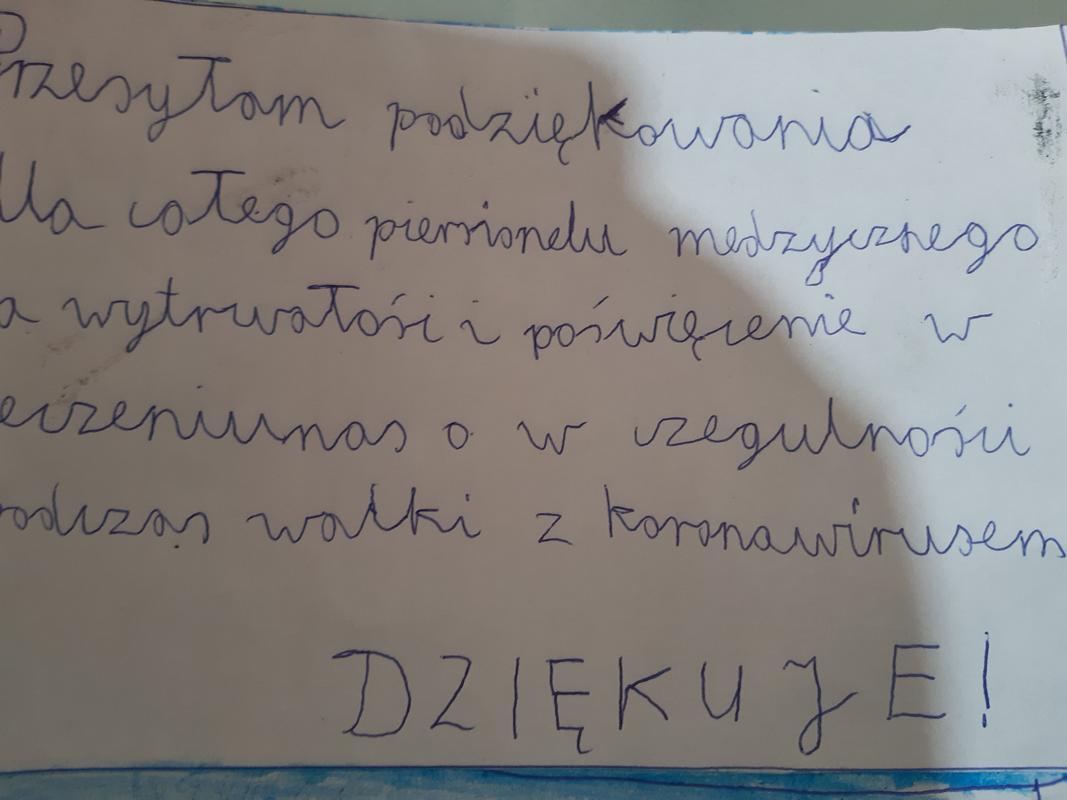 Przesyłam podziękowania
dla całego piersionelu medzycznego
a wytrwałości i poświęcenie w
eczeniunas a w czegulności
odczas walki z koronawirusem
DZIĘKUJE!